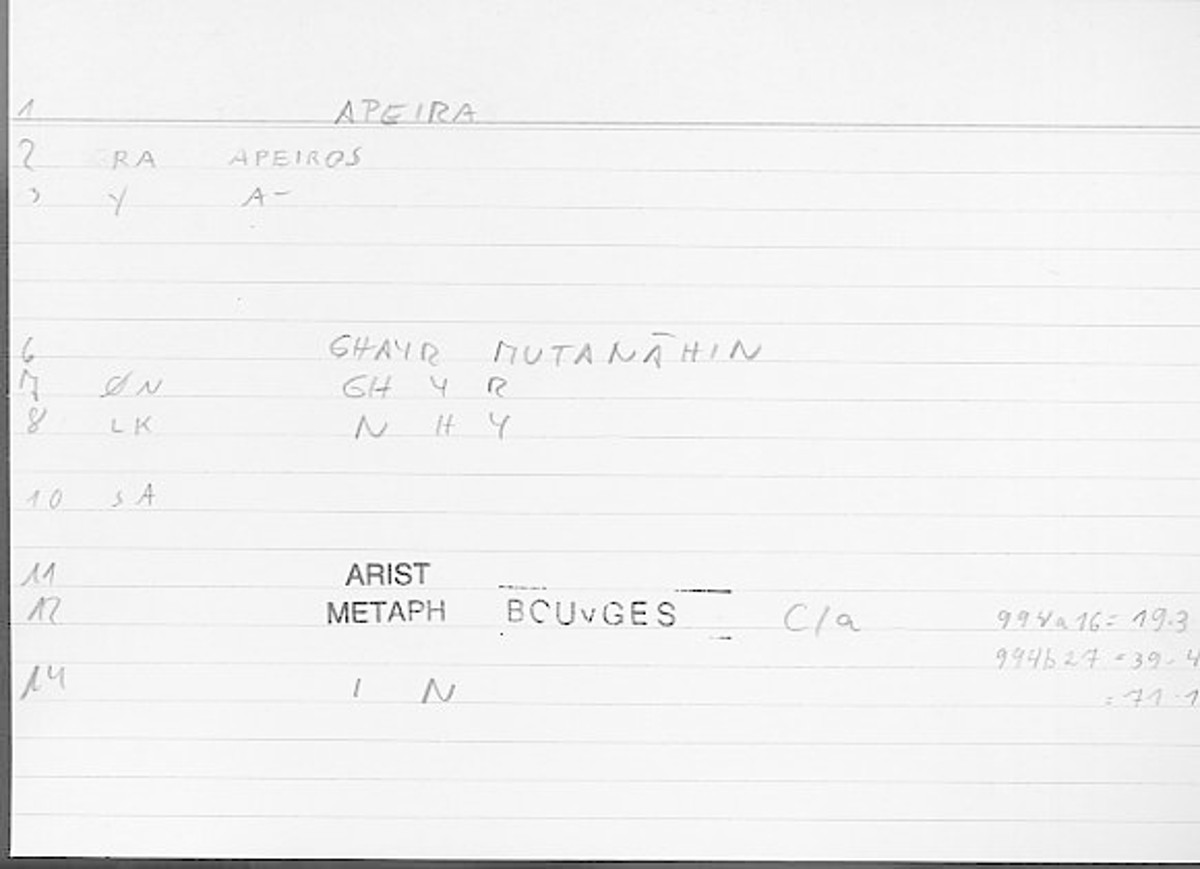 1 APEIRA
2 RA APEIROS
3 Y A-
6 GHAYR MUTANĀHIN
7 ØN GH Y R
8 LK N H Y
10 SA
11 ARIST
12 METAPH BOUYGES C/a 994a16 = 19.3
994b27 = 39.4
14 I N = 71.1